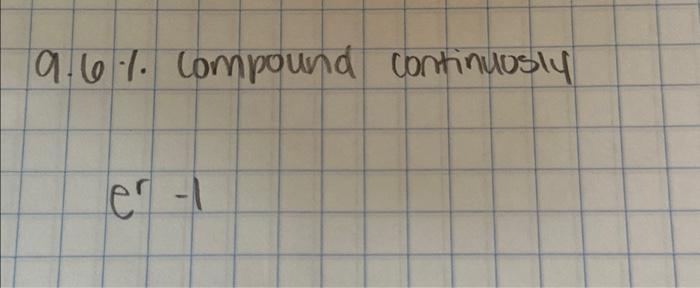 9.6%. compound continuosly
e^r -1